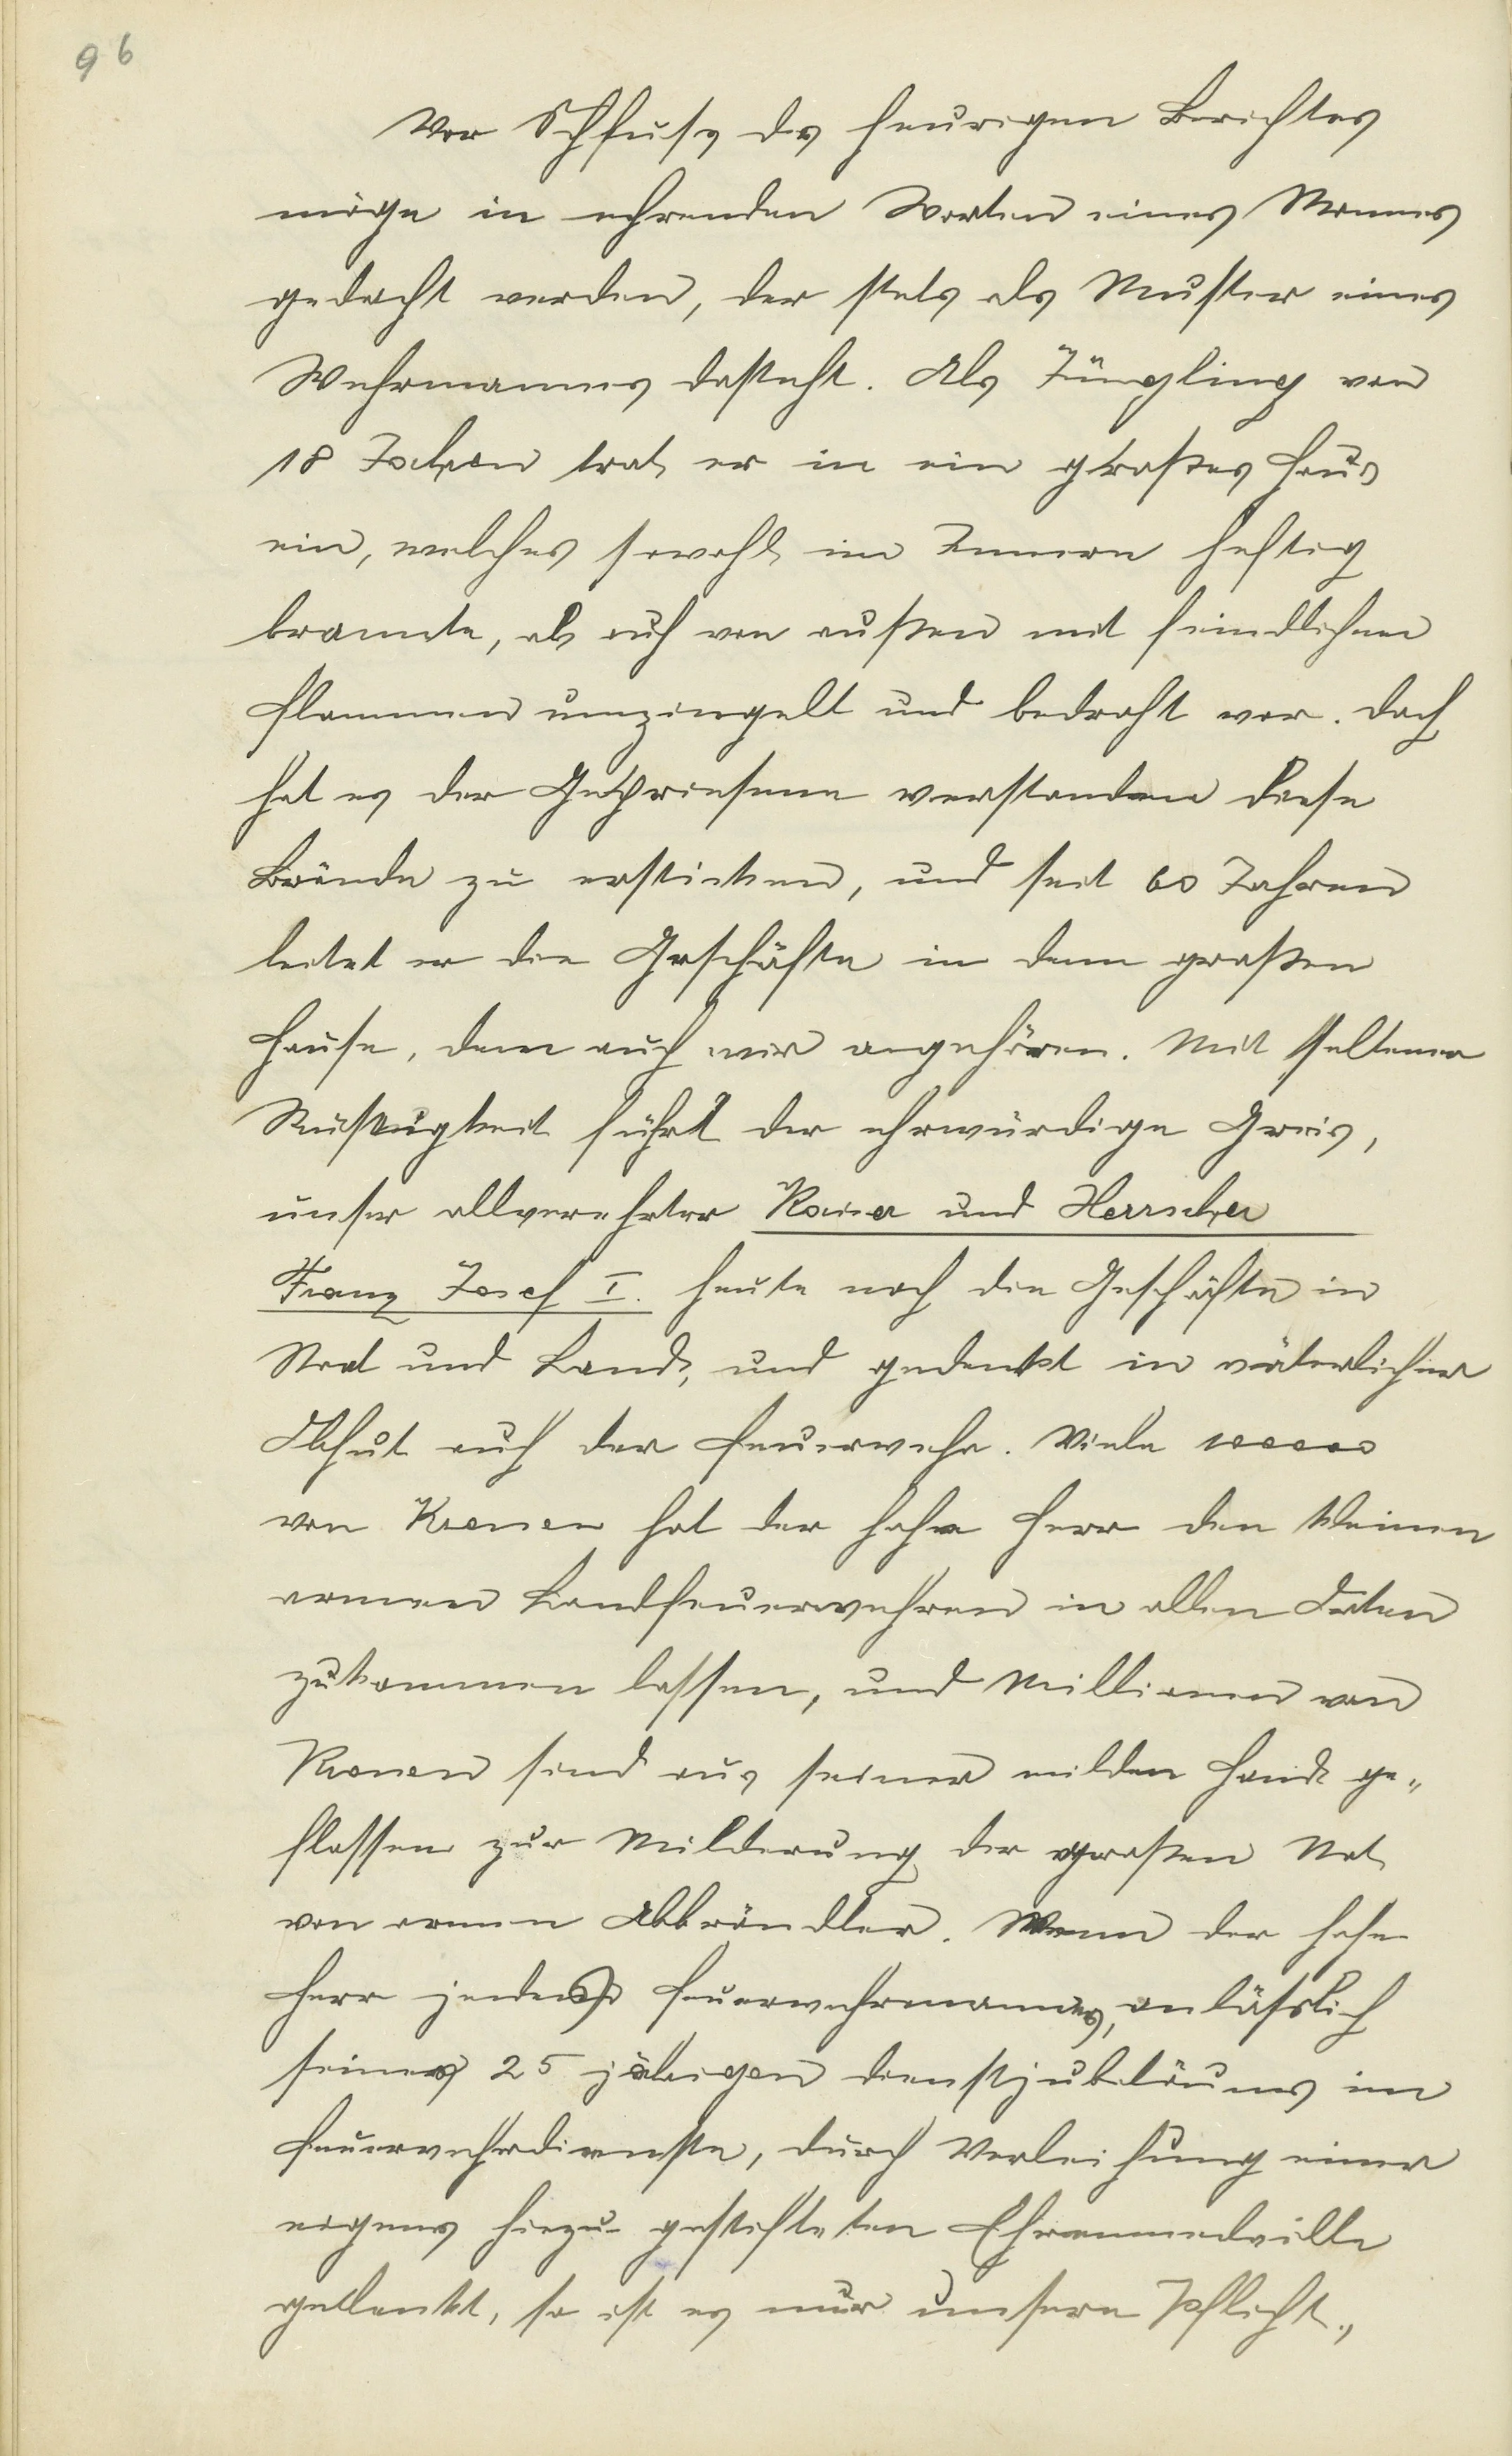 96
Vor Schluss des heurigen Berichtes
möge in ehrenden Worten eines Mannes
gedacht werden, der stets als Muster eines
Wehrmannes dasteht. Als Jüngling von
18 Jahren trat er in ein großes Haus
ein, welches sowohl im Innern heftig
brannte, als auch von außen mit feindlichen
Flammen umzingelt und bedroht war. Doch
hat es der Gepriesene verstanden diese
Brände zu ersticken, und seit 60 Jahren
leitet er die Geschäfte in dem großen
Hause, dem auch wir angehören. Mit seltener
Rüstigkeit führt der ehrwürdige Greis,
unser allverehrter Kaiser und Herrscher
Franz Josef I. heute noch die Geschäfte in
Stat und Land, und gedenkt in väterlicher
Obhut auch der Feuerwehr. Viele 10000
von Kronen hat der hohe Herr den kleinen
armen Landfeuerwehren in allen Orten
zukommen lassen, und Millionen von
Kronen sind aus seiner milden Hand ge„
flossen zur Milderung der großen Not
von armen Abbrändler. Wenn der hohe
Herr jedes Feuerwehrmannes, anlässlich
seines 25 jährigen Dienstjubiläums im
Feuerwehrdienste, durch Verleihung einer
eigens hiezu gestifteten Ehrenmedaille
gedenkt, so ist es nur unsere Pflicht,